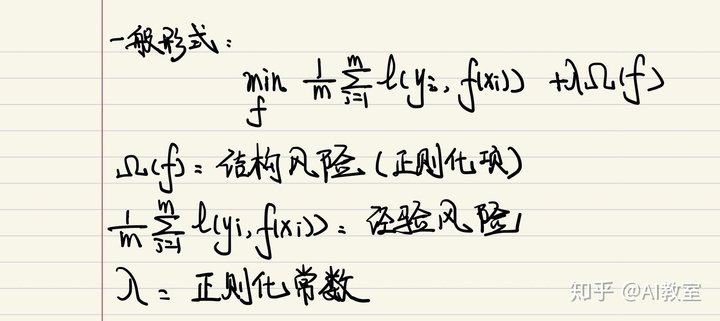 一般形式：
min_f 1/m ∑_{i=1}^{m} l(yi, f(xi)) + λΩ(f)
Ω(f): 结构风险 (正则化项)
1/m ∑_{i=1}^{m} l(yi, f(xi)): 经验风险
λ: 正则化常数
知乎 @AI教室